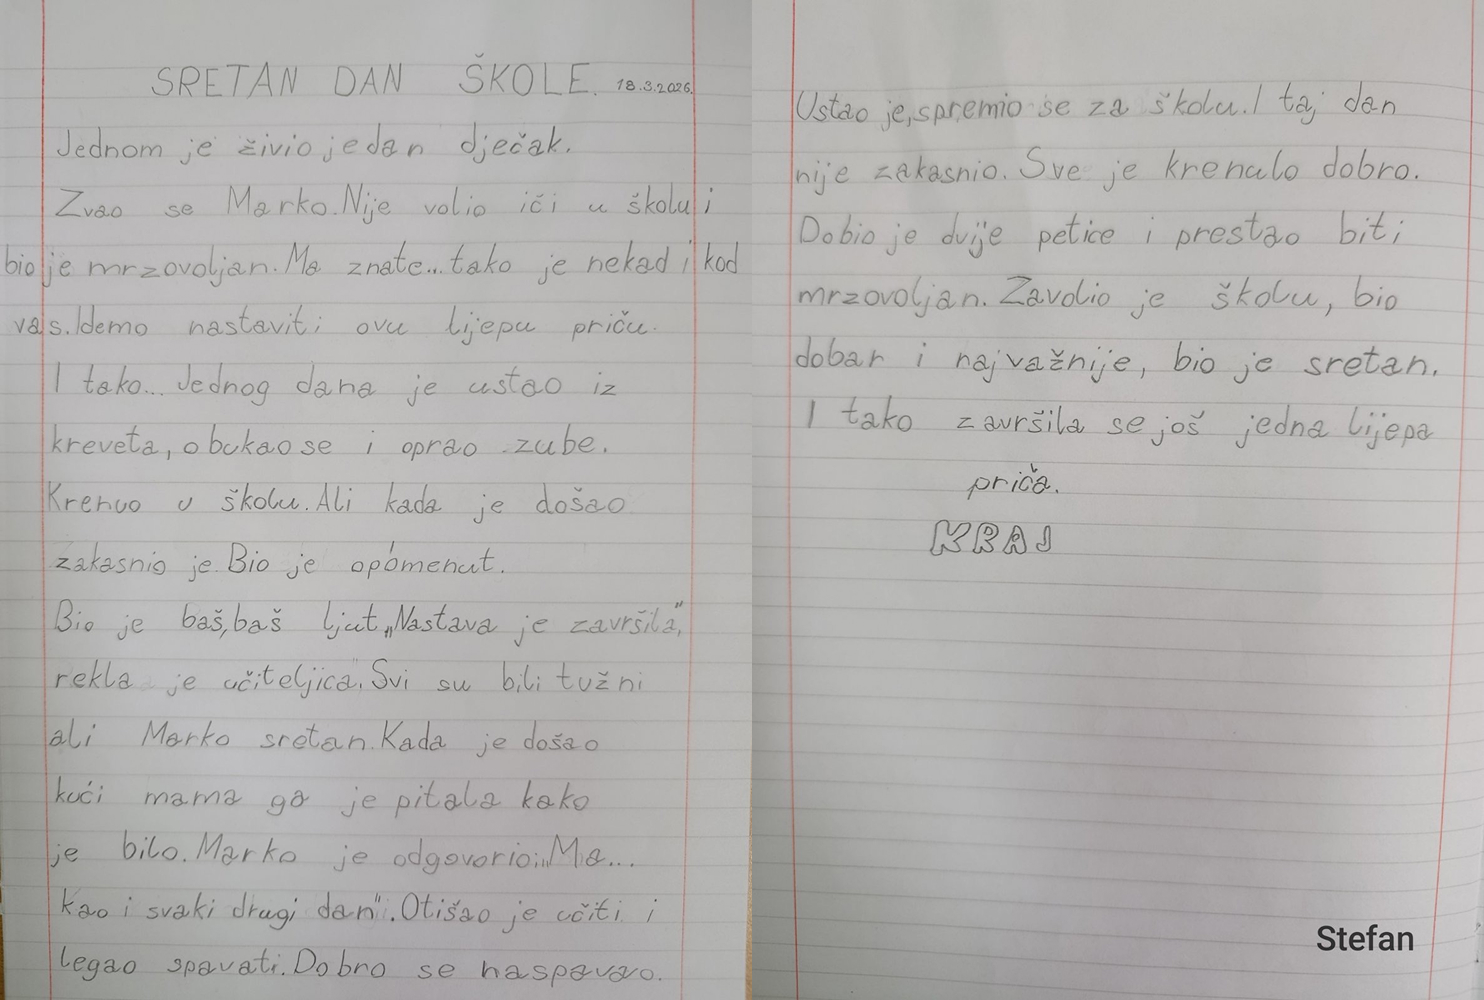 SRETAN DAN ŠKOLE. 18.3.2026.
Jednom je živio jedan dječak.
Zvao se Marko. Nije volio iči u školu i
bio je mrzovoljan. Ma znate... tako je nekad i kod
vas. Idemo nastaviti ovu lijepu priču.
I tako... Jednog dana je ustao iz
kreveta, obukao se i oprao zube.
Krenuo u školu. Ali kada je došao
zakasnio je. Bio je opomenut.
Bio je baš, baš ljut. „Nastava je završila",
rekla je učiteljica. Svi su bili tužni
ali Marko sretan. Kada je došao
kući mama ga je pitala kako
je bilo. Marko je odgovorio: „Ma...
kao i svaki drugi dan". Otišao je učiti i
legao spavati. Dobro se naspavao.
Ustao je, spremio se za školu. I taj dan
nije zakasnio. Sve je krenulo dobro.
Dobio je dvije petice i prestao biti
mrzovoljan. Zavolio je školu, bio
dobar i najvažnije, bio je sretan.
I tako završila se još jedna lijepa
priča.
KRAJ
Stefan